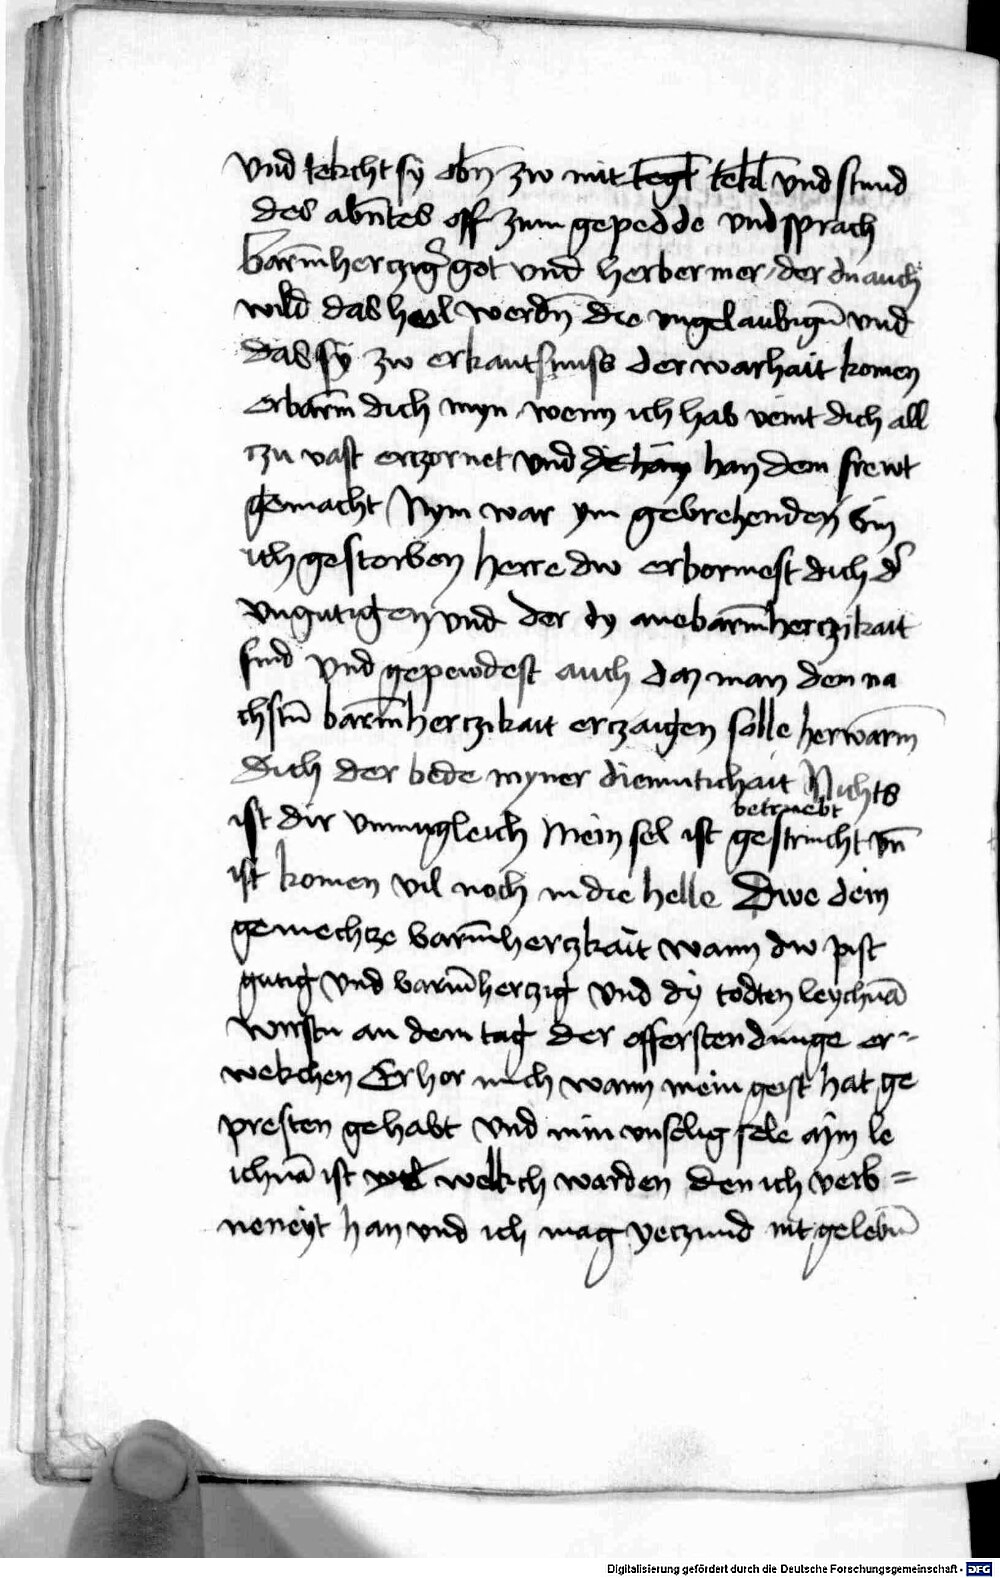 vnd tekcht sy obn̄ zw mit tegl tekl vnd stund
des abn̄tes off zum gepedde vnd sprach
barm̄hercziger got vnd herbermer der du auch
wild das heil werdn̄ die vngelaubign̄ vnd
das sy zw erkantsnuss der warhait komen
erbarm dich myn wenn ich hab veint dich all
czu vast erczornet vnd han dem frewt
gemacht Nym war ym gebrehenden bin
ich gestorben herre dw erbormest dich d̄
vngutigen vnd der dy ane barm̄herczikait
sind vnd gepewdest auch das man dem na
chstn̄ barm̄herczikait erczaigen solle herwarm̄
dich der bede myner diemutichait Nichts
betruebt
ist dir vnmugleich Mein sel ist gestrucht vn̄
ist komen vil noch in die helle Dwe dein
gemechcze barm̄herczkait wann dw pist
gutig vnd barm̄herczig vnd dy todten leychnā
wirstu an dem tag der offerstendunge er-
wekchen Erhor mich wann mein geist hat ge
presten gehabt vnd min vnselig sele aym le
ichnā ist welkch warden den ich verb=
neneyt han vnd ich mag yeczund nit gelebn̄
Digitalisierung gefördert durch die Deutsche Forschungsgemeinschaft - DFG